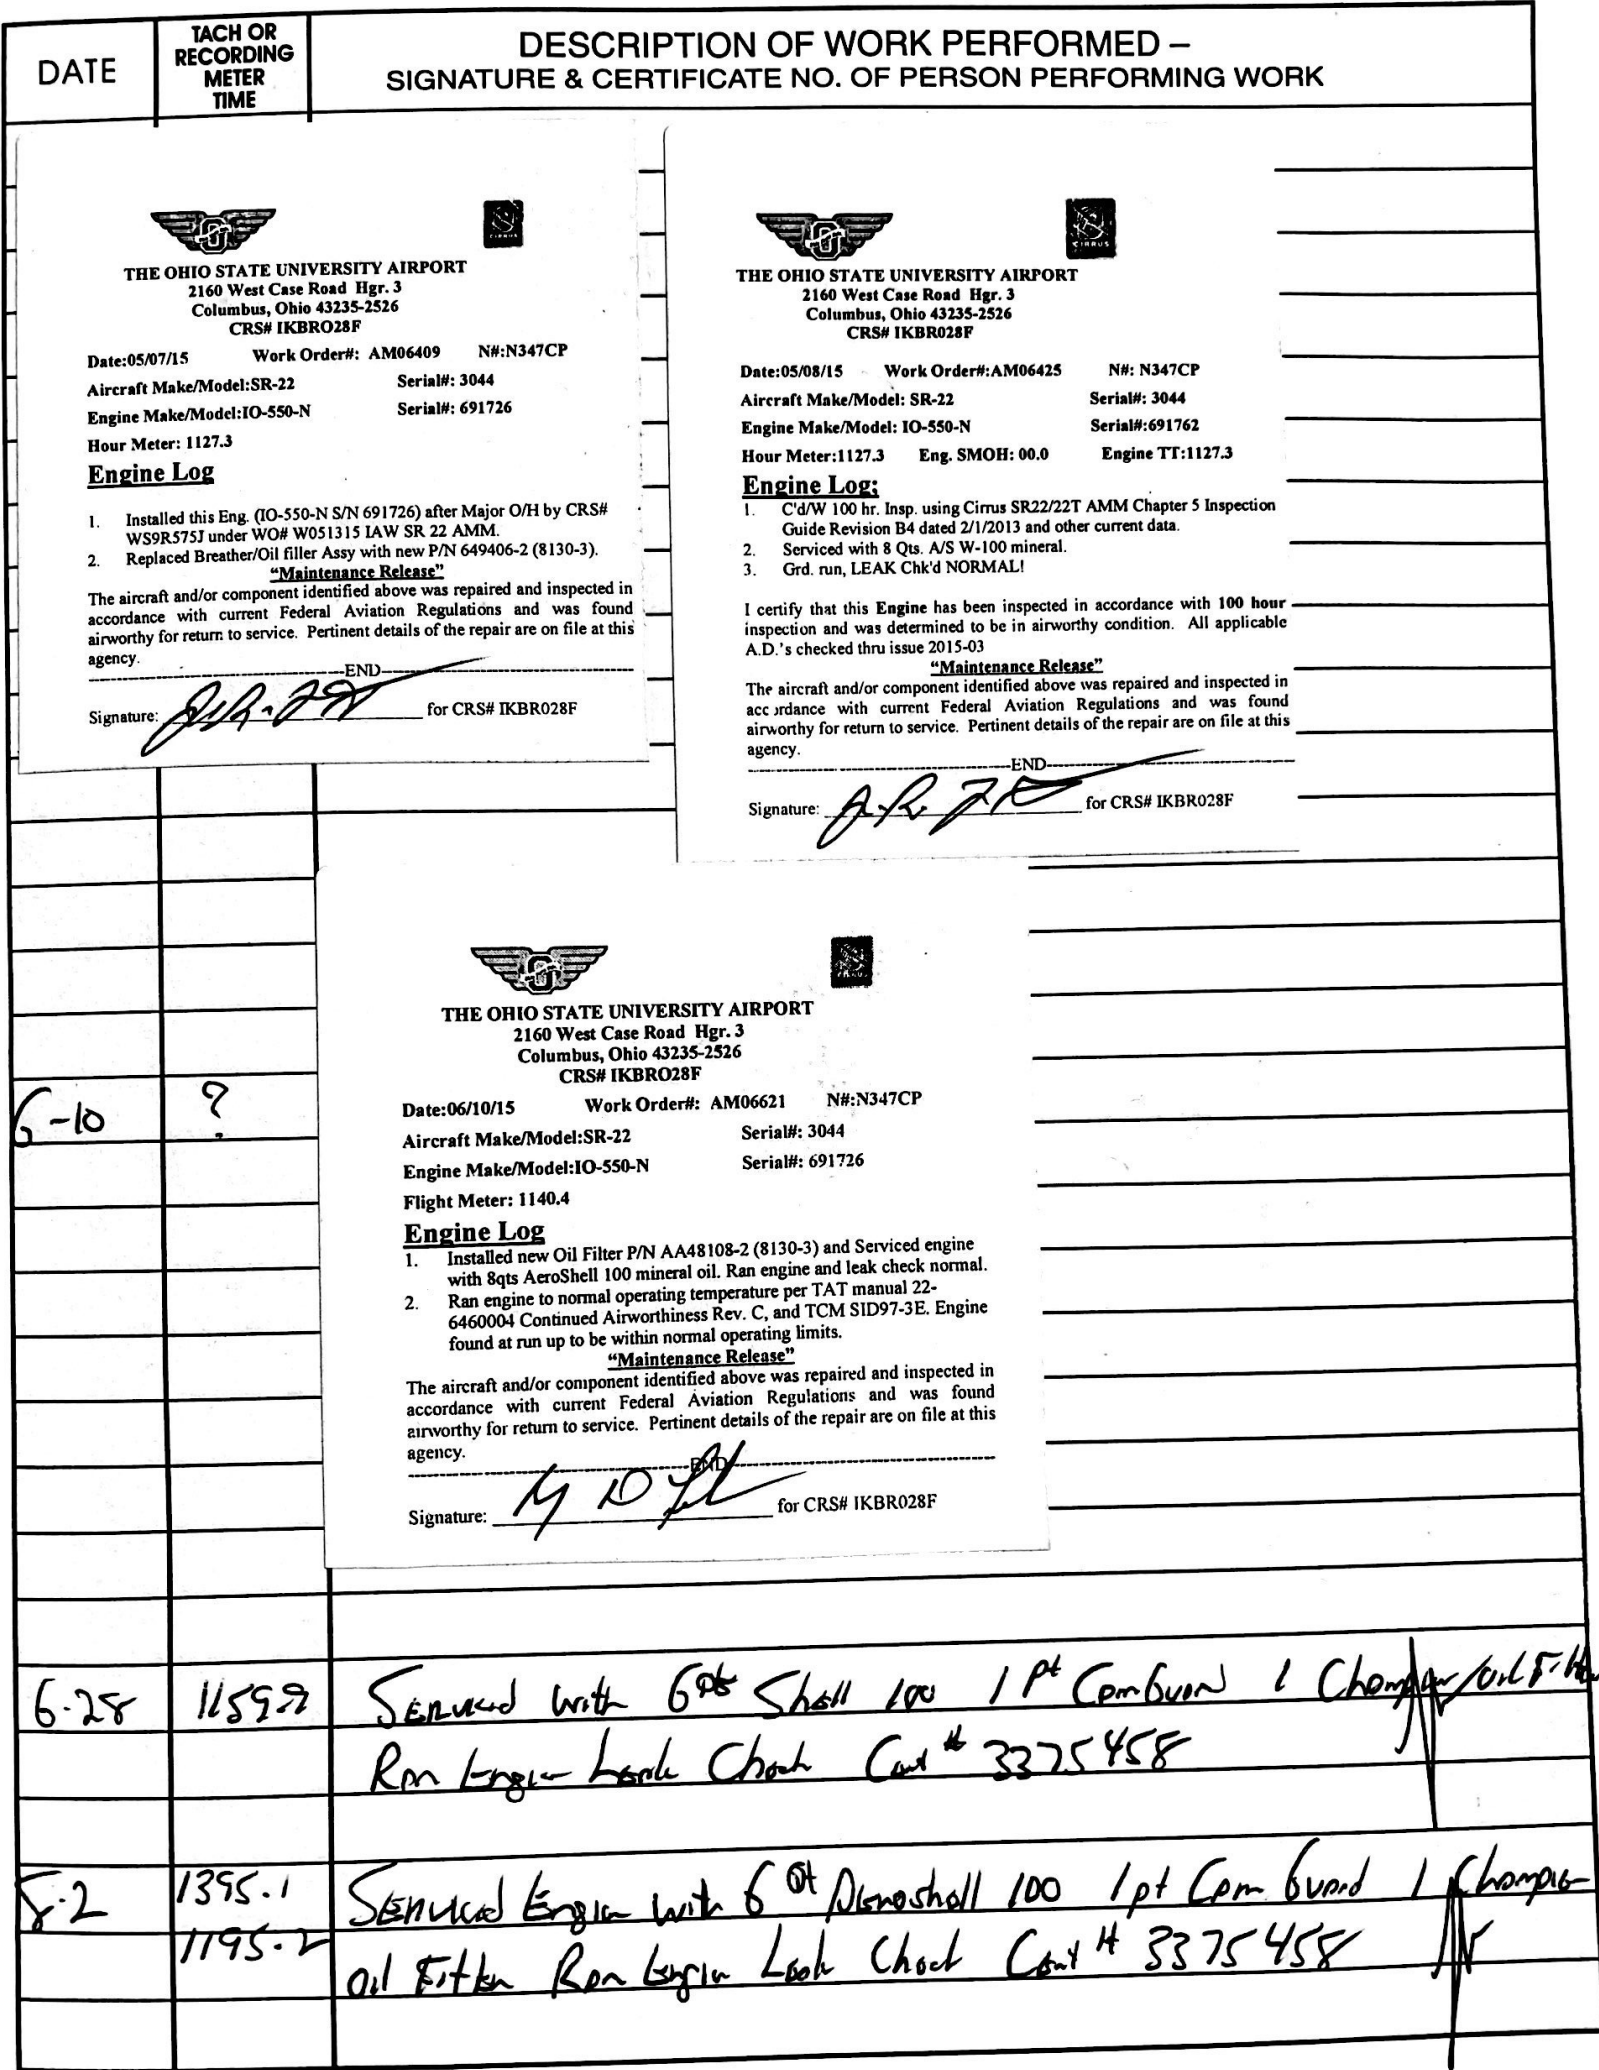 DATE
TACH OR
RECORDING
METER
TIME
DESCRIPTION OF WORK PERFORMED –
SIGNATURE & CERTIFICATE NO. OF PERSON PERFORMING WORK
CIRRUS
THE OHIO STATE UNIVERSITY AIRPORT
2160 West Case Road Hgr. 3
Columbus, Ohio 43235-2526
CRS# IKBRO28F
Date:05/07/15 Work Order#: AM06409 N#:N347CP
Aircraft Make/Model:SR-22 Serial#: 3044
Engine Make/Model:IO-550-N Serial#: 691726
Hour Meter: 1127.3
Engine Log
1. Installed this Eng. (IO-550-N S/N 691726) after Major O/H by CRS#
WS9R575J under WO# W051315 IAW SR 22 AMM.
2. Replaced Breather/Oil filler Assy with new P/N 649406-2 (8130-3).
“Maintenance Release”
The aircraft and/or component identified above was repaired and inspected in
accordance with current Federal Aviation Regulations and was found
airworthy for return to service. Pertinent details of the repair are on file at this
agency.
END
Signature: for CRS# IKBR028F
CIRRUS
THE OHIO STATE UNIVERSITY AIRPORT
2160 West Case Road Hgr. 3
Columbus, Ohio 43235-2526
CRS# IKBR028F
Date:05/08/15 Work Order#:AM06425 N#: N347CP
Aircraft Make/Model: SR-22 Serial#: 3044
Engine Make/Model: IO-550-N Serial#:691762
Hour Meter:1127.3 Eng. SMOH: 00.0 Engine TT:1127.3
Engine Log;
1. C'd/W 100 hr. Insp. using Cirrus SR22/22T AMM Chapter 5 Inspection
Guide Revision B4 dated 2/1/2013 and other current data.
2. Serviced with 8 Qts. A/S W-100 mineral.
3. Grd. run, LEAK Chk'd NORMAL!
I certify that this Engine has been inspected in accordance with 100 hour
inspection and was determined to be in airworthy condition. All applicable
A.D.'s checked thru issue 2015-03
“Maintenance Release”
The aircraft and/or component identified above was repaired and inspected in
accordance with current Federal Aviation Regulations and was found
airworthy for return to service. Pertinent details of the repair are on file at this
agency.
END
Signature: for CRS# IKBR028F
THE OHIO STATE UNIVERSITY AIRPORT
2160 West Case Road Hgr. 3
Columbus, Ohio 43235-2526
CRS# IKBRO28F
6-10 ?
Date:06/10/15 Work Order#: AM06621 N#:N347CP
Aircraft Make/Model:SR-22 Serial#: 3044
Engine Make/Model:IO-550-N Serial#: 691726
Flight Meter: 1140.4
Engine Log
1. Installed new Oil Filter P/N AA48108-2 (8130-3) and Serviced engine
with 8qts AeroShell 100 mineral oil. Ran engine and leak check normal.
2. Ran engine to normal operating temperature per TAT manual 22-
6460004 Continued Airworthiness Rev. C, and TCM SID97-3E. Engine
found at run up to be within normal operating limits.
“Maintenance Release”
The aircraft and/or component identified above was repaired and inspected in
accordance with current Federal Aviation Regulations and was found
airworthy for return to service. Pertinent details of the repair are on file at this
agency.
END
Signature: for CRS# IKBR028F
6-28 Serviced with 6 Shell 100 1 Pt CamGuard 1 Champion Oil Filter
Ran Engine Leak Check Cert # 3375458
8-2 1395.1 Serviced Engine with 6 Qt Aeroshell 100 1 pt Cam Guard 1 Champion
1195.2 Oil Filter Ran Engine Leak Check Cert # 3375458